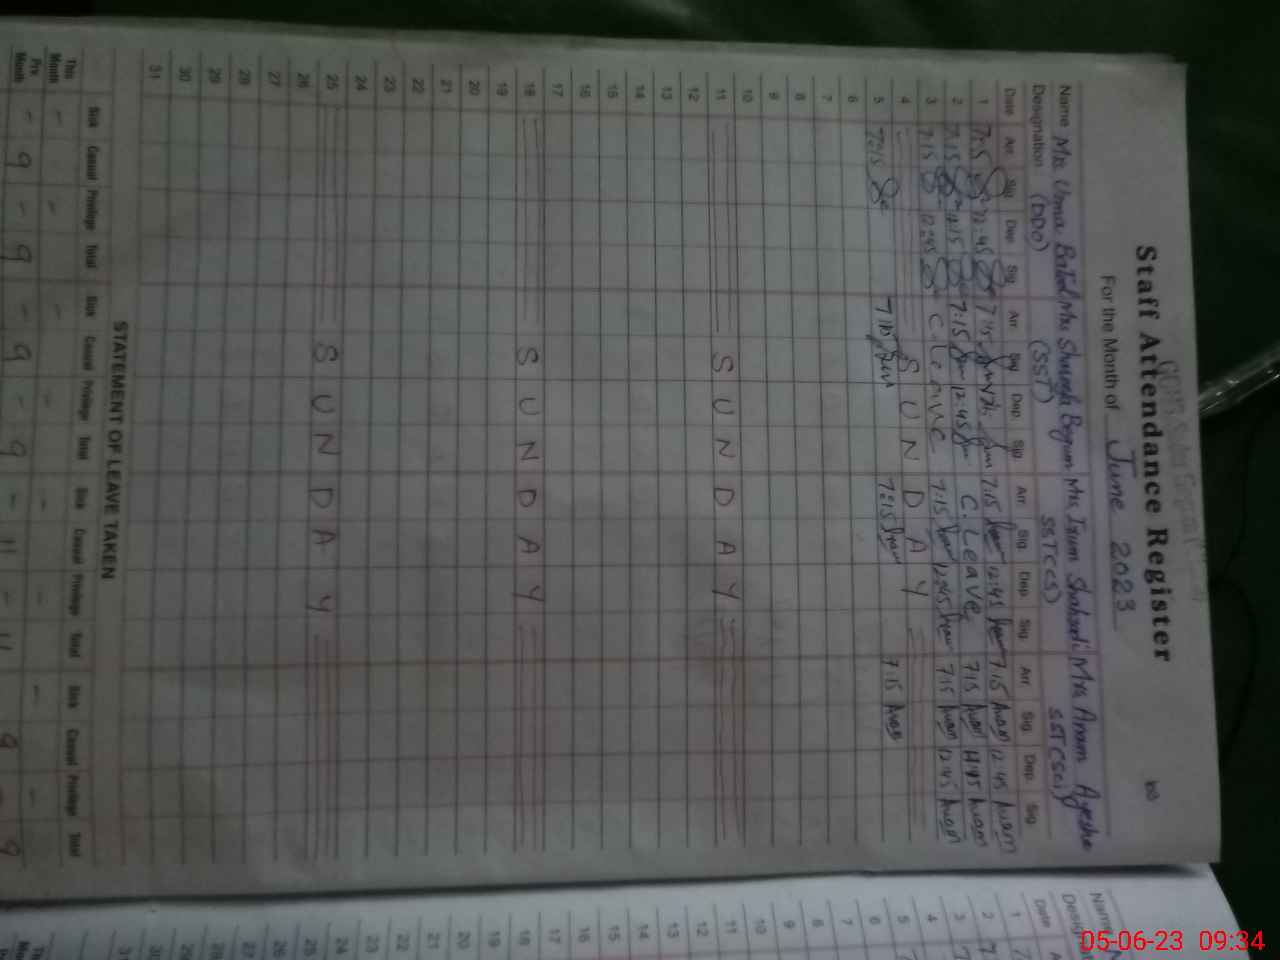 Staff Attendance Register
For the Month of June 2023
Name Mrs Uzma Batool Mrs Shaheeda Begum Mrs Irum Shahzadi Mrs Anam Ayesha
Designation (DDO) (SST) SST(CS) SST(Sci)
Date Arr Sig Dep Sig Arr Sig Dep Sig Arr Sig Dep Sig Arr Sig Dep Sig
1 7:15 12:45 7:15 7:15 12:45 7:15 Anam 12:45 Anam
2 7:15 12:15 7:15 12:45 C. Leave 7:15 Anam Anam
3 7:15 12:45 C. Leave 7:15 12:45 7:15 Anam 12:45 Anam
4 SUNDAY
5 7:15 7:15 7:15 7:15 Anam
6
7
8
9
10
11 SUNDAY
12
13
14
15
16
17
18 SUNDAY
19
20
21
22
23
24
25 SUNDAY
26
27
28
29
30
31
STATEMENT OF LEAVE TAKEN
Sick Casual Privilege Total Sick Casual Privilege Total Sick Casual Privilege Total Sick Casual Privilege Total
This Month - - - - - - - -
Prv. Month - 9 - 9 - 9 - 9 - 11 - 11 9 - 9
Name
Design
Date
1
2
3
4
5
6
7
8
9
10
11
12
13
14
15
16
17
18
19
20
21
22
23
24
25
26
27
28
29
30
31
05-06-23 09:34